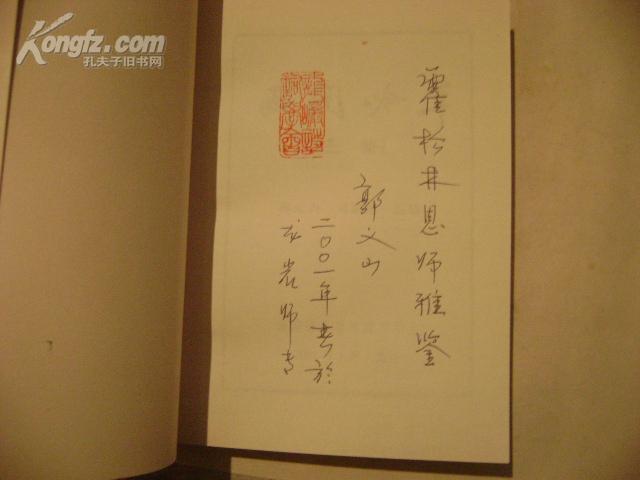 霍松林恩师雅鉴
郭义山
二〇〇一年春於
龙岩师专
Kongfz.com
孔夫子旧书网